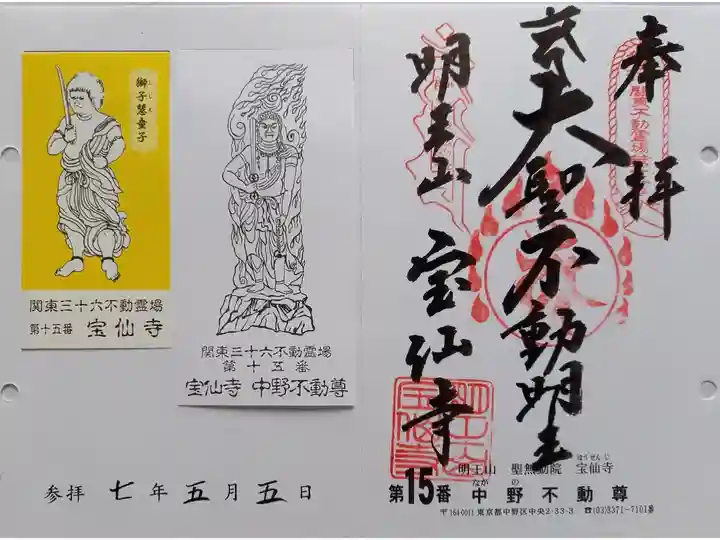 獅子慧童子
ししえ
関東三十六不動霊場
第十五番 宝仙寺
関東三十六不動霊場
第十五番
宝仙寺 中野不動尊
参拝 七年五月五日
奉拝
大聖不動明王
明王山 宝仙寺
明王山 聖無動院 宝仙寺
ほうせんじ
第15番 中野不動尊
なかの
〒164-0011 東京都中野区中央2-33-3 ☎(03)3371-7101番